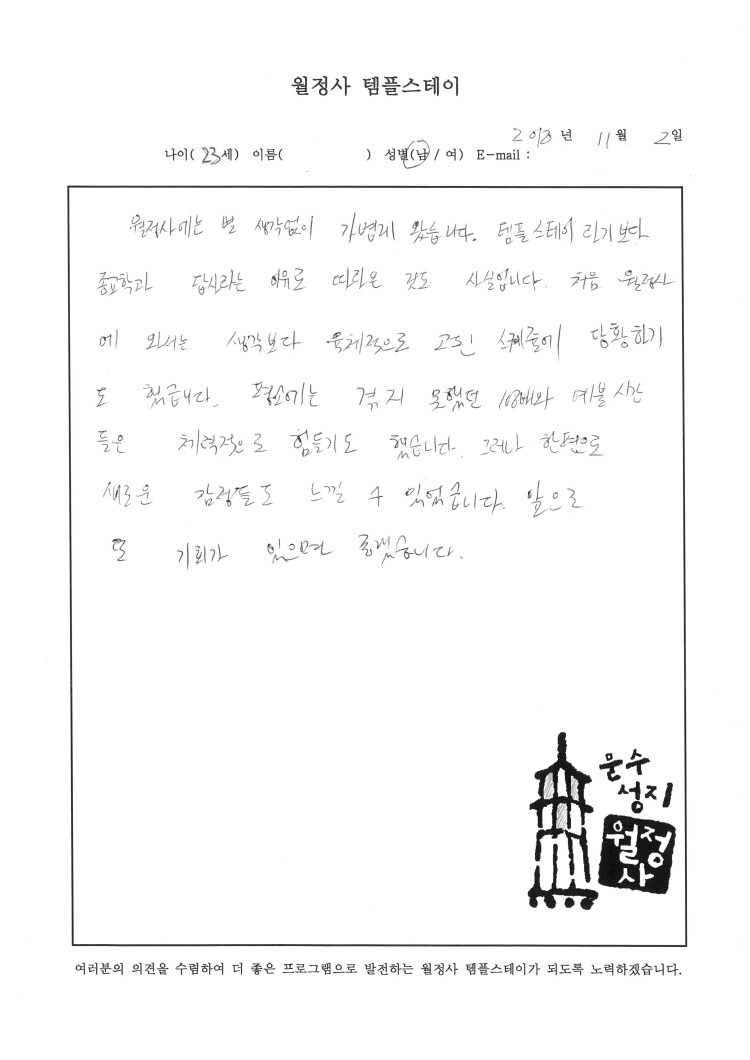 월정사 템플스테이
2013년 11월 2일
나이( 23세) 이름( ) 성별(남 / 여) E-mail :
월정사에는 별 생각없이 가볍게 왔습니다. 템플스테이 라기 보다
종교학과 답사라는 이유로 따라온 것도 사실입니다. 처음 월정사
에 와서는 생각보다 육체적으로 고된 스케줄에 당황하기
도 했습니다. 평소에는 겪지 못했던 108배와 예불 시간
들은 체력적으로 힘들기도 했습니다. 그러나 한편으로
새로운 감정들도 느낄 수 있었습니다. 앞으로
또 기회가 있으면 좋겠습니다.
문수
성지
월정
사
여러분의 의견을 수렴하여 더 좋은 프로그램으로 발전하는 월정사 템플스테이가 되도록 노력하겠습니다.